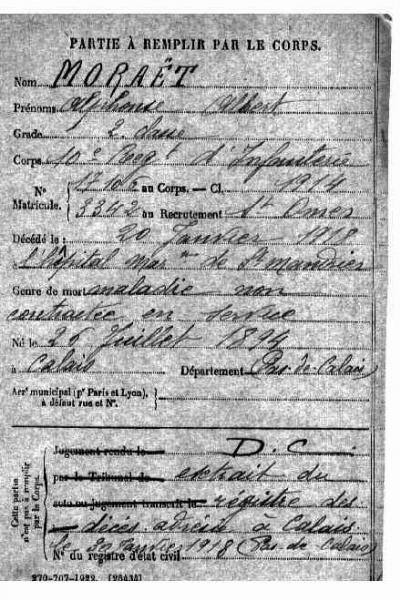 PARTIE À REMPLIR PAR LE CORPS.
Nom MORAËT
Prénoms Alphonse Albert
Grade 2e classe
Corps 10e Reg d'Infanterie
N° Matricule. au Corps. — Cl. 1914
3342 au Recrutement St Omer
Décédé le 20 Janvier 1918
à l'hôpital mar me de St Mandrier
Genre de mort maladie non
contractée en service
Né le 20 Juillet 1894
à Calais Département Pas-de-Calais
Arrt municipal (pr Paris et Lyon), à défaut rue et N°.
Cette partie n'est pas à remplir par le Corps.
Jugement rendu le D.C
par le Tribunal de extrait du
acte ou jugement transcrit le registre des
décès adressé à Calais
le 20 Janvier 1918 (Pas-de-Calais)
N° du registre d'état civil
270-707-1922. [26434]